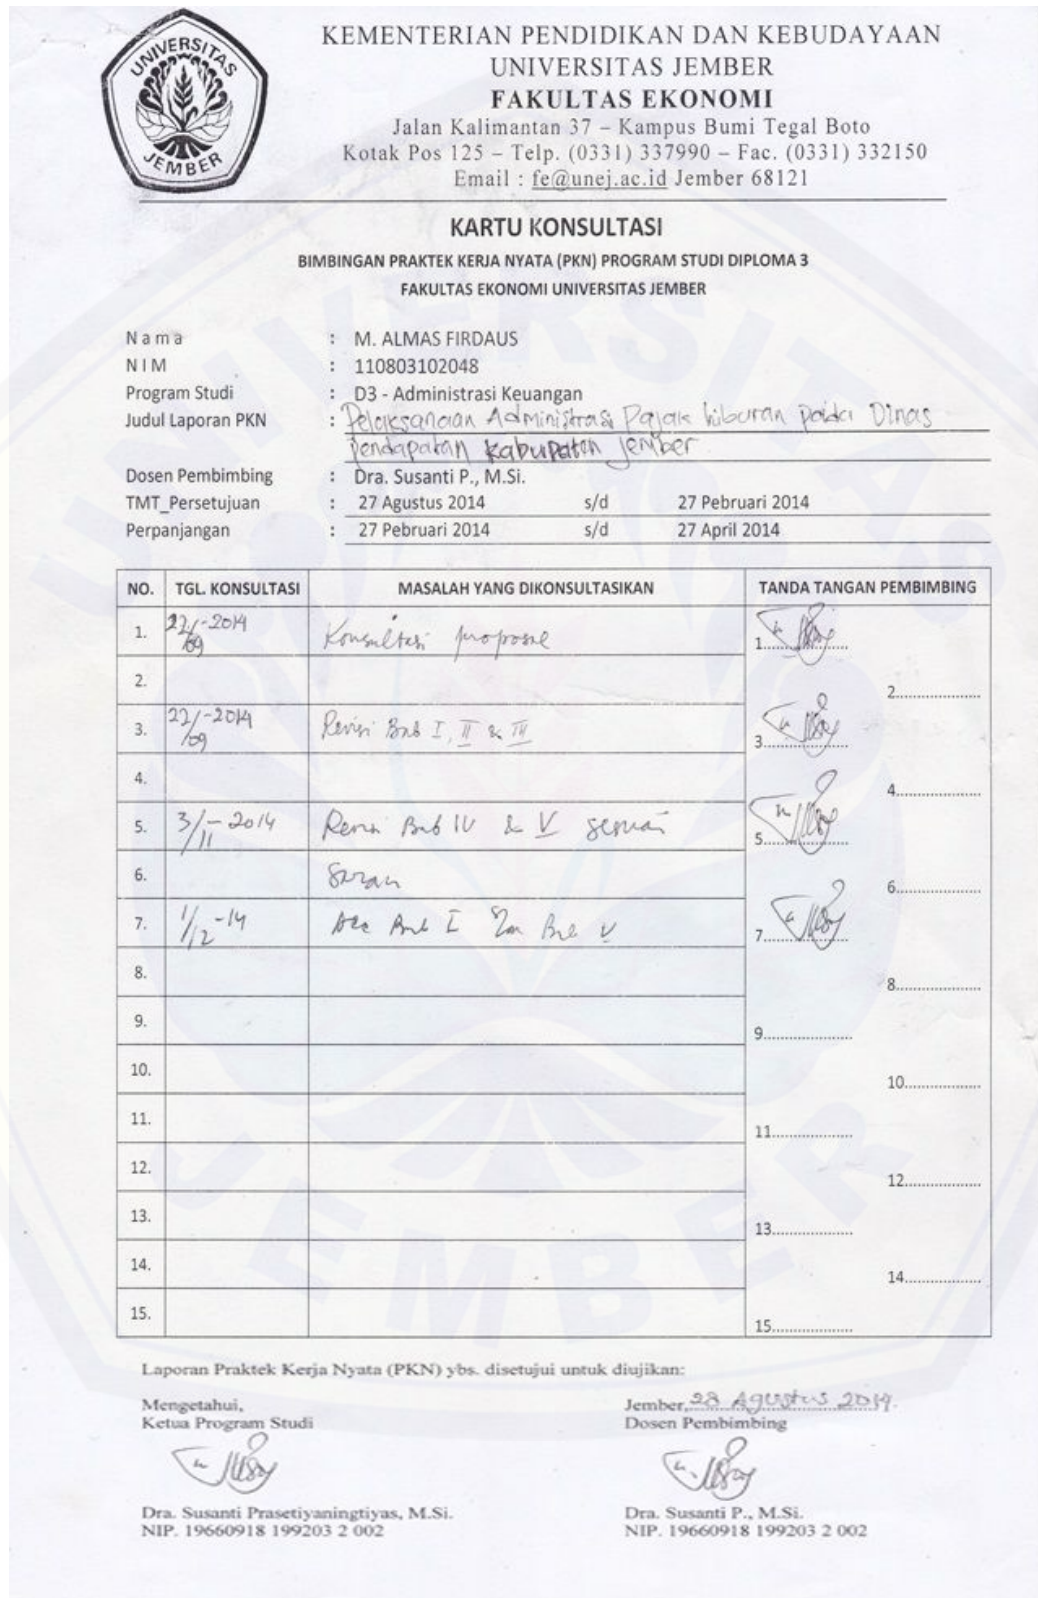 UNIVERSITAS
JEMBER
KEMENTERIAN PENDIDIKAN DAN KEBUDAYAAN
UNIVERSITAS JEMBER
FAKULTAS EKONOMI
Jalan Kalimantan 37 – Kampus Bumi Tegal Boto
Kotak Pos 125 – Telp. (0331) 337990 – Fac. (0331) 332150
Email : fe@unej.ac.id Jember 68121
KARTU KONSULTASI
BIMBINGAN PRAKTEK KERJA NYATA (PKN) PROGRAM STUDI DIPLOMA 3
FAKULTAS EKONOMI UNIVERSITAS JEMBER
N a m a : M. ALMAS FIRDAUS
N I M : 110803102048
Program Studi : D3 - Administrasi Keuangan
Judul Laporan PKN : Pelaksanaan Administrasi Pajak hiburan pada Dinas
pendapatan Kabupaten jember
Dosen Pembimbing : Dra. Susanti P., M.Si.
TMT_Persetujuan : 27 Agustus 2014 s/d 27 Pebruari 2014
Perpanjangan : 27 Pebruari 2014 s/d 27 April 2014
NO. TGL. KONSULTASI MASALAH YANG DIKONSULTASIKAN TANDA TANGAN PEMBIMBING
1. 22/09-2014 Konsultasi proposal 1.....................
2. 2.....................
3. 22/09-2014 Revisi Bab I, II & III 3.....................
4. 4.....................
5. 3/11-2014 Revisi Bab IV & V sesuai 5.....................
6. Saran 6.....................
7. 1/12-14 Acc Bab I Bab V 7.....................
8. 8.....................
9. 9.....................
10. 10.....................
11. 11.....................
12. 12.....................
13. 13.....................
14. 14.....................
15. 15.....................
Laporan Praktek Kerja Nyata (PKN) ybs. disetujui untuk diujikan:
Mengetahui, Jember, 28 Agustus 2014.
Ketua Program Studi Dosen Pembimbing
Dra. Susanti Prasetiyaningtiyas, M.Si. Dra. Susanti P., M.Si.
NIP. 19660918 199203 2 002 NIP. 19660918 199203 2 002